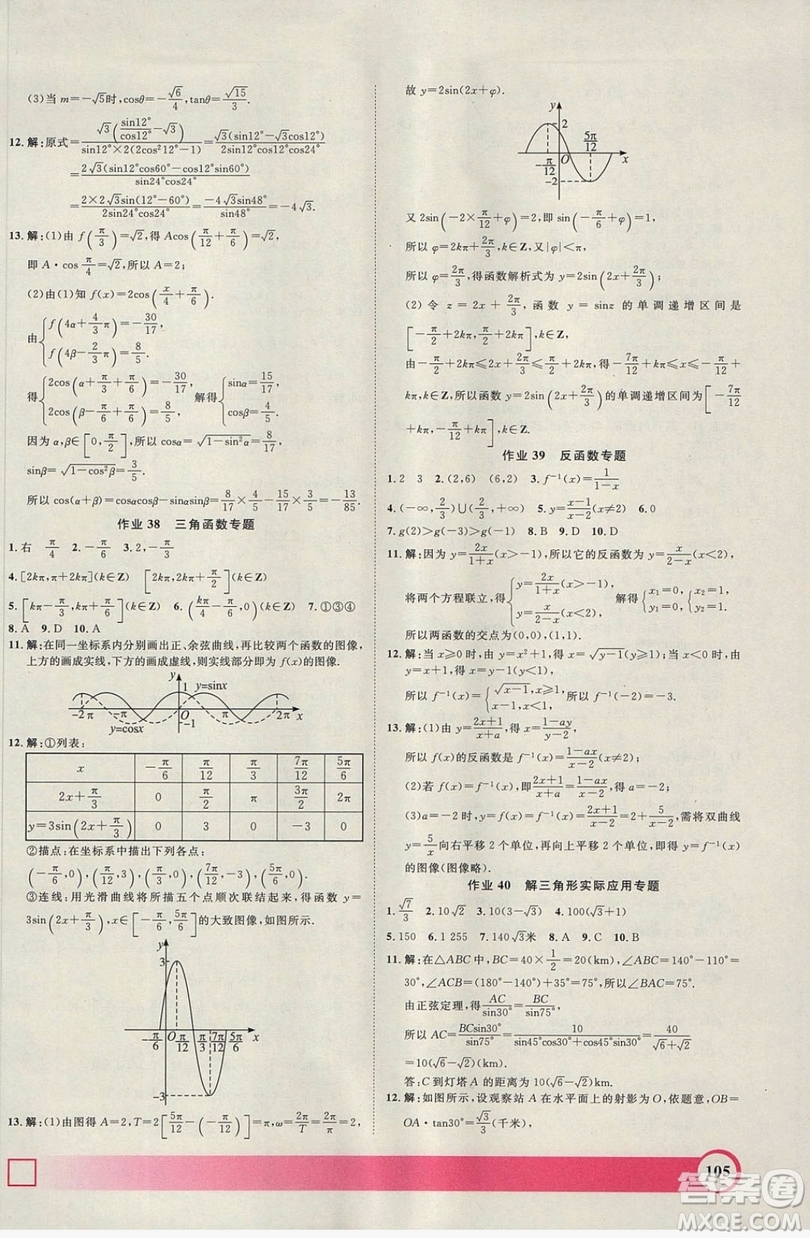 (3)当 m=-√5时,cosθ=-√6/4,tanθ=√15/3.
12.解:原式=√3(sin12°/cos12°-√3)/(sin12°×2(2cos²12°-1))=√3(sin12°-√3cos12°)/(sin12°cos12°cos24°)
=2√3(sin12°cos60°-cos12°sin60°)/(sin24°cos24°)
=2×2√3sin(12°-60°)/(2sin24°cos24°)=-4√3sin48°/sin48°=-4√3.
13.解:(1)由 f(π/3)=√2,得 Acos(π/12+π/6)=√2,
即 A·cosπ/4=√2,所以 A=2;
(2)由(1)知 f(x)=2cos(x/4+π/6).
由{f(4α+4/3π)=-30/17, f(4β-2/3π)=8/5,
得{2cos(α+π/3+π/6)=-30/17, 2cos(β-π/6+π/6)=8/5, 解得{sinα=15/17, cosβ=4/5.
因为 α,β∈[0,π/2],所以 cosα=√(1-sin²α)=8/17,
sinβ=√(1-cos²β)=3/5.
所以 cos(α+β)=cosαcosβ-sinαsinβ=8/17×4/5-15/17×3/5=-13/85.
作业 38 三角函数专题
1.右 π/4 2.-π/6 3.2,-π/3
4.[2kπ,π+2kπ](k∈Z) [2kπ,2kπ+π/2](k∈Z)
5.[2kπ,2kπ+π/2](k∈Z) 6.(kπ/2-π/6,0)(k∈Z) 7.①③④
8.A 9.D 10.A
11.解:在同一坐标系内分别画出正、余弦曲线,再比较两个函数的图像,
上方的画成实线,下方的画成虚线,则实线部分即为 f(x)的图像.
y 1 y=sinx
-2π -π O π 2π x
y=cosx -1
12.解:①列表:
x -π/6 π/12 π/3 7π/12 5π/6
2x+π/3 0 π/2 π 3π/2 2π
y=3sin(2x+π/3) 0 3 0 -3 0
②描点:在坐标系中描出下列各点:
(-π/6,0),(π/12,3),(π/3,0),(7π/12,-3),(5π/6,0).
③连线:用光滑曲线将所描的五个点顺次联结起来,得函数 y=
3sin(2x+π/3),x∈[-π/6,5π/6]的大致图像,如图所示.
y
3
-π/6 O π/12 π/3 7π/12 5π/6 x
-3
13.解:(1)由图得 A=2,T=2[5π/12-(-π/12)]=π,ω=2π/T=2π/π=2,
故 y=2sin(2x+φ).
y
2 5π/12
-π/12 O x
-2
又 2sin(-2×π/12+φ)=2,所以 sin(-π/6+φ)=1,
所以 φ=2kπ+2π/3,k∈Z. 又|φ|<π,
所以 φ=2π/3,得函数解析式为 y=2sin(2x+2π/3).
(2)令 z=2x+2π/3,函数 y=sinz 的单调递增区间是
[-π/2+2kπ,π/2+2kπ],k∈Z.
由-π/2+2kπ≤2x+2π/3≤π/2+2kπ,k∈Z,得-7π/12+kπ≤x≤-π/12+
kπ,k∈Z,所以函数 y=2sin(2x+2π/3)的单调递增区间为[-7π/12+
kπ,-π/12+kπ],k∈Z.
作业 39 反函数专题
1.2 3 2.(2,6) (6,2) 3.f⁻¹(x)=1/(x-1)
4.(-∞,2/3)∪(2/3,+∞) 5.f⁻¹(x)=2/x(x≠2) 6.0
7.g(2)>g(-1)>g(-3) 8.B 9.D 10.D
11.解:因为 y=2x/(1+x)(x>-1),所以它的反函数为 y=x/(2-x)(x<2).
将两个方程联立,得{y=2x/(1+x)(x>-1), y=x/(2-x)(x<2), 解得{x₁=0, y₁=0, {x₂=1, y₂=1,
所以两函数的交点为(0,0),(1,1).
12.解:当 x≥0时,由 y=x²+1,得 x=√(y-1)(y≥1);当 x<0时,由
所以 f⁻¹(x)={√(x-1),x≥1,
13.解:(1)由 y=(2x+1)/(x+a),得 x=(1-ay)/(y-2).
所以 f(x)的反函数 f⁻¹(x)=(1-ax)/(x-2)(x≠2).
(2)若 f(x)=f⁻¹(x),即(2x+1)/(x+a)=(1-ax)/(x-2),所以 a=-2.
(3)a=-2时,f(x)=f⁻¹(x)=(2x+1)/(x-2)=2+5/(x-2),需将双曲线
y=5/x向右平移 2 个单位,向上平移 2 个单位,可得 f⁻¹(x)
的图像(图像略).
作业 40 解三角形实际应用专题
1.√7/3 2.10√2
5.150 6.1 255 7.140√3米 8.A 9.C 10.B
11.解:在△ABC 中,BC=40×1/2=20(km),∠ABC=140°-110°=
30°,∠ACB=(180°-140°)+35°=75°,所以∠BAC=75°.
由正弦定理,得AC/sin30°=BC/sin75°.
所以 AC=BCsin30°/sin75°=10/(sin45°cos30°+cos45°sin30°)=40/(√6+√2)
=10(√6-√2)(km).
答:C 到灯塔 A 的距离为 10(√6-√2)km.
12.解:如图,设观察站 A 在水平面上的射影为 O,依题意,OB=
OA·tan30°=√3/3(千米),
105
答案圈
MXQE.COM